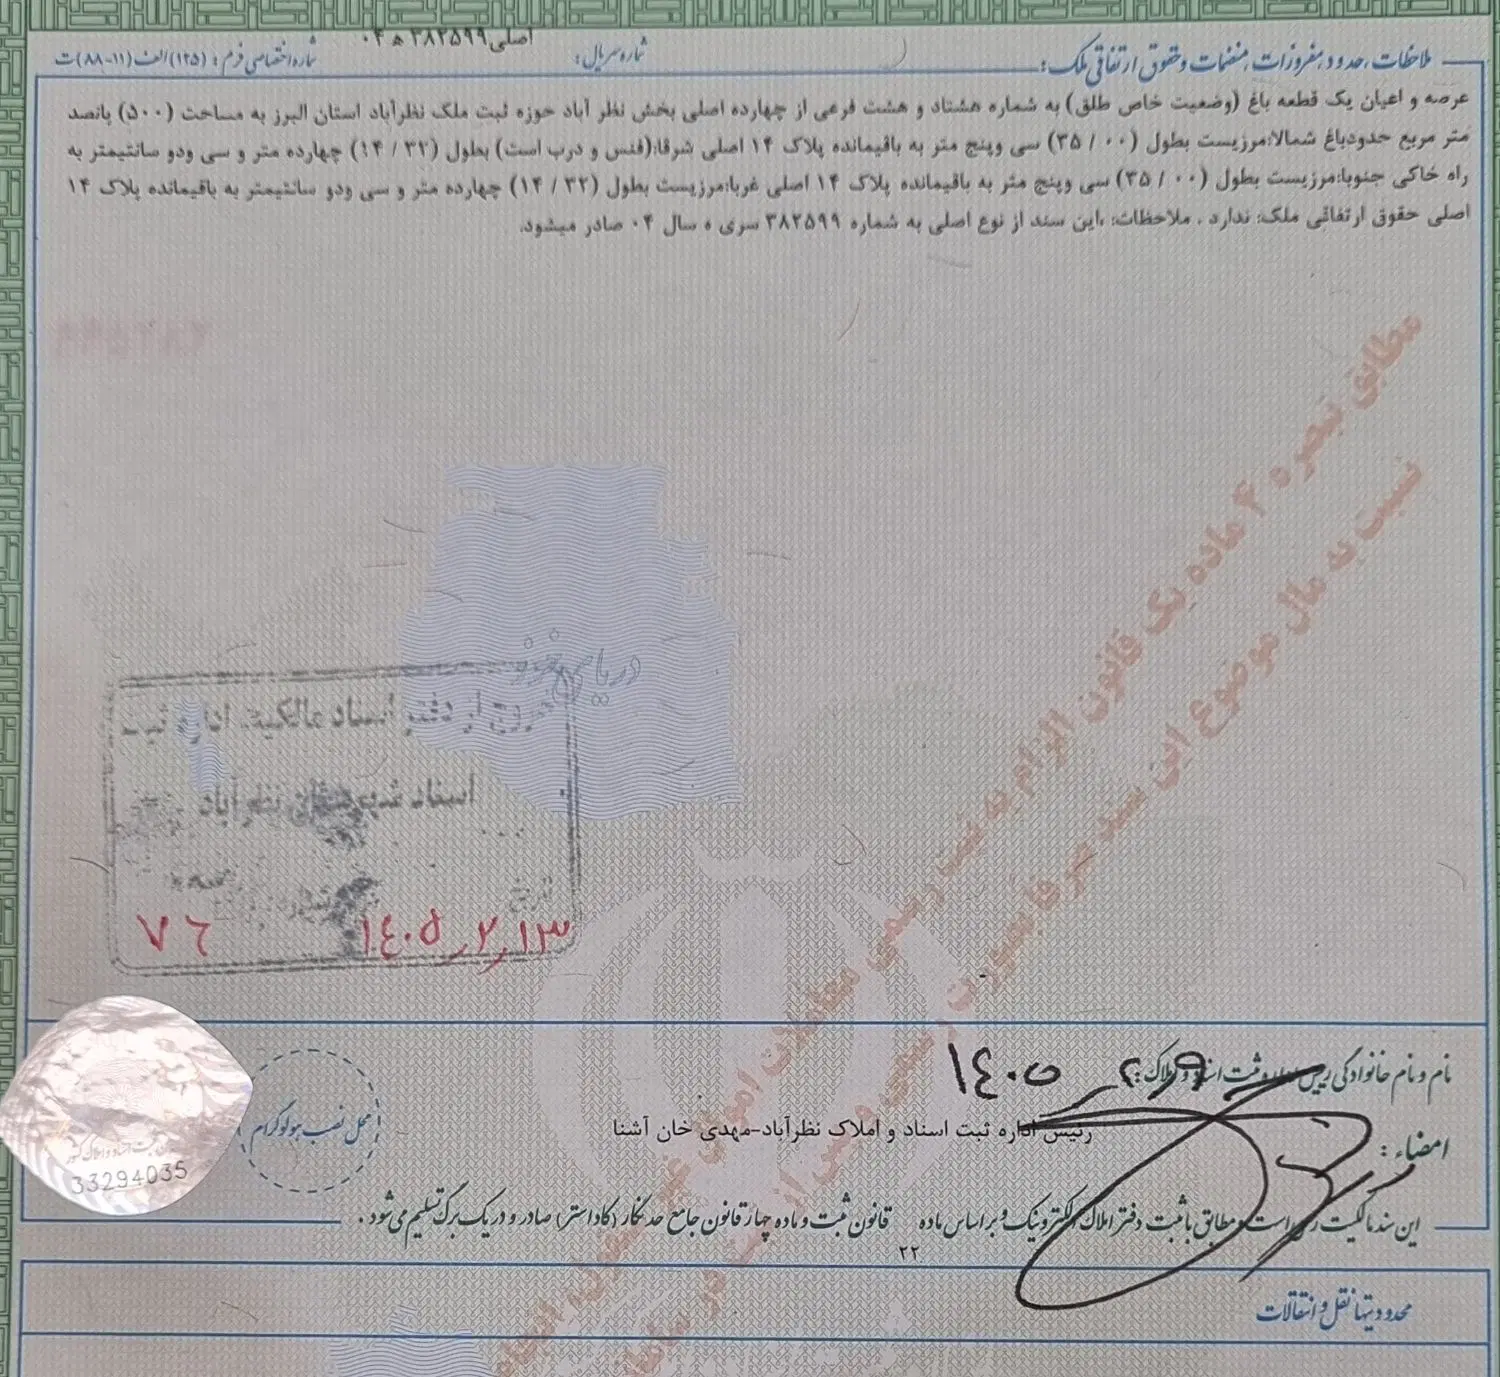 ملاحظات، حدود، مفروزات، منضمات و حقوق ارتفاقی ملک:
شماره سریال: اصلی ۳۸۲۵۹۹ ه ۰۴
شماره اختصاصی فرم: (۱۲۵) الف (۱۱-۸۸) ت
عرصه و اعیان یک قطعه باغ (وضعیت خاص طلق) به شماره هشتاد و هشت فرعی از چهارده اصلی بخش نظر آباد حوزه ثبت ملک نظرآباد استان البرز به مساحت (۵۰۰) پانصد
متر مربع حدودباغ شمالا:مرزیست بطول (۰۰ / ۳۵) سی وپنج متر به باقیمانده پلاک ۱۴ اصلی شرقا:(فنس و درب است) بطول (۳۲ / ۱۴) چهارده متر و سی ودو سانتیمتر به
راه خاکی جنوبا:مرزیست بطول (۰۰ / ۳۵) سی وپنج متر به باقیمانده پلاک ۱۴ اصلی غربا:مرزیست بطول (۳۲ / ۱۴) چهارده متر و سی ودو سانتیمتر به باقیمانده پلاک ۱۴
اصلی حقوق ارتفاقی ملک: ندارد . ملاحظات: ،این سند از نوع اصلی به شماره ۳۸۲۵۹۹ سری ه سال ۰۴ صادر میشود.
مطابق تبصره ۴ ماده یک قانون الزام به ثبت رسمی معاملات اموال غیر
نسبت به مال موضوع این سند صرفا بصورت رسمی و پس از
دریای خزر
خروج از دفتر اسناد مالکیت اداره ثبت
اسناد شهرستان نظرآباد
تاریخ
۱۴۰۵٫۲٫۱۳
۷۶
نام و نام خانوادگی رییس اداره ثبت اسناد و املاک:
۱۴۰۵٫۲٫۹
رئیس اداره ثبت اسناد و املاک نظرآباد-مهدی خان آشنا
امضاء :
محل نصب هولوگرام
33294035
این سند مالکیت رسمی است و مطابق با ثبت دفتر املاک الکترونیک و بر اساس ماده ۲۲ قانون ثبت و ماده چهار قانون جامع حدنگار (کاداستر) صادر و در یک برگ تسلیم می شود .
محدودیتها نقل و انتقالات